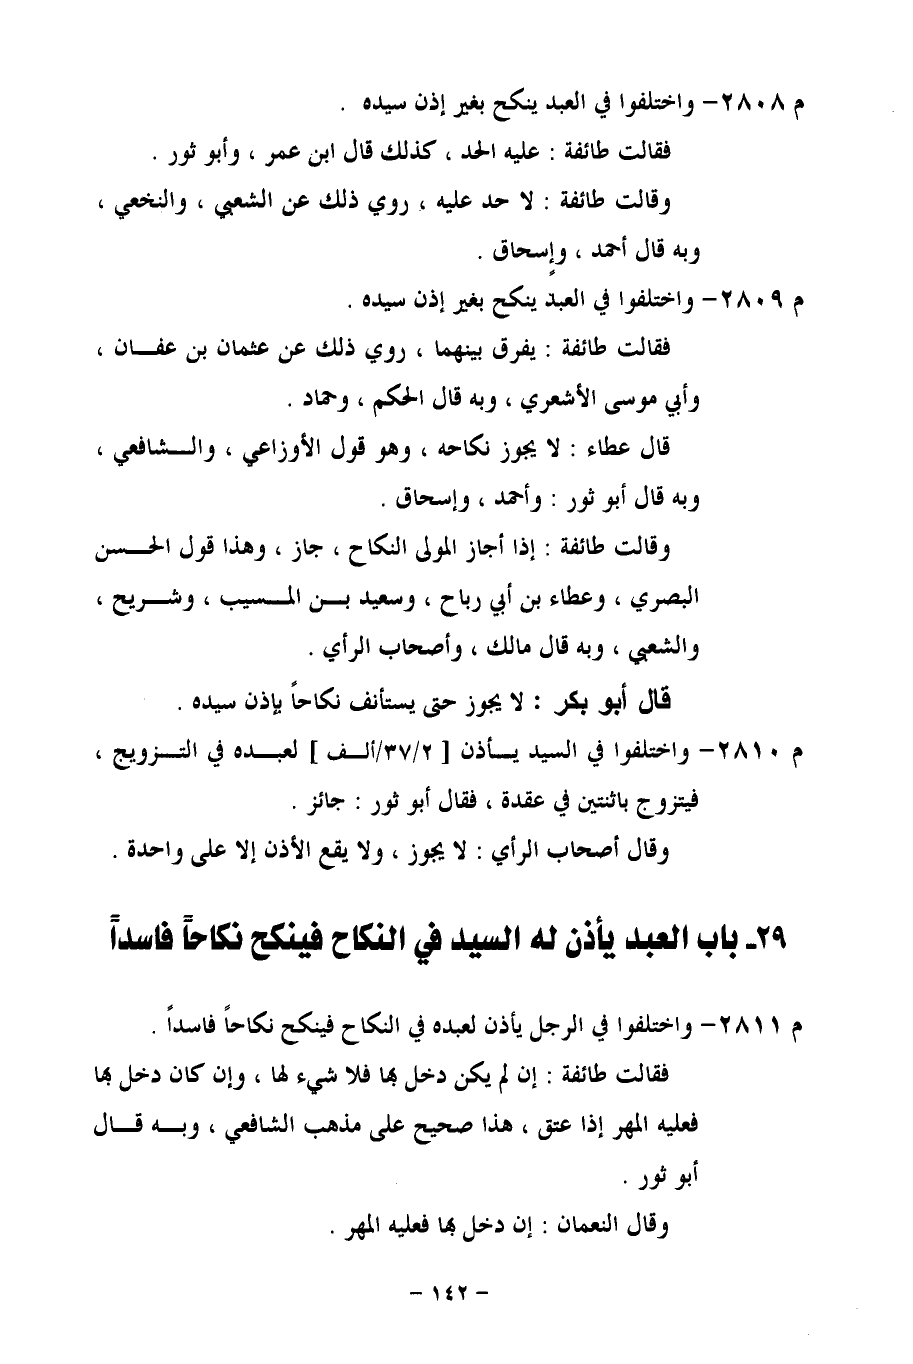 م ٢٨٠٨- واختلفوا في العبد ينكح بغير إذن سيده .
فقالت طائفة : عليه الحد ، كذلك قال ابن عمر ، وأبو ثور .
وقالت طائفة : لا حد عليه ، روي ذلك عن الشعبي ، والنخعي ،
وبه قال أحمد ، وإسحاق .
م ٢٨٠٩- واختلفوا في العبد ينكح بغير إذن سيده .
فقالت طائفة : يفرق بينهما ، روي ذلك عن عثمان بن عفـــان ،
وأبي موسى الأشعري ، وبه قال الحكم ، وحماد .
قال عطاء : لا يجوز نكاحه ، وهو قول الأوزاعي ، والـــشافعي ،
وبه قال أبو ثور : وأحمد ، وإسحاق .
وقالت طائفة : إذا أجاز المولى النكاح ، جاز ، وهذا قول الحـــسن
البصري ، وعطاء بن أبي رباح ، وسعيد بـــن المـــسيب ، وشـــريح ،
والشعبي ، وبه قال مالك ، وأصحاب الرأي .
قال أبو بكر : لا يجوز حتى يستأنف نكاحاً بإذن سيده .
م ٢٨١٠- واختلفوا في السيد يـــأذن [ ٣٧/٢/ألـــف ] لعبـــده في التـــزويج ،
فيتزوج باثنتين في عقدة ، فقال أبو ثور : جائز .
وقال أصحاب الرأي : لا يجوز ، ولا يقع الأذن إلا على واحدة .
٢٩ـ باب العبد يأذن له السيد في النكاح فينكح نكاحاً فاسداً
م ٢٨١١- واختلفوا في الرجل يأذن لعبده في النكاح فينكح نكاحاً فاسداً .
فقالت طائفة : إن لم يكن دخل بها فلا شيء لها ، وإن كان دخل بها
فعليه المهر إذا عتق ، هذا صحيح على مذهب الشافعي ، وبـــه قـــال
أبو ثور .
وقال النعمان : إن دخل بها فعليه المهر .
- ١٤٢ -